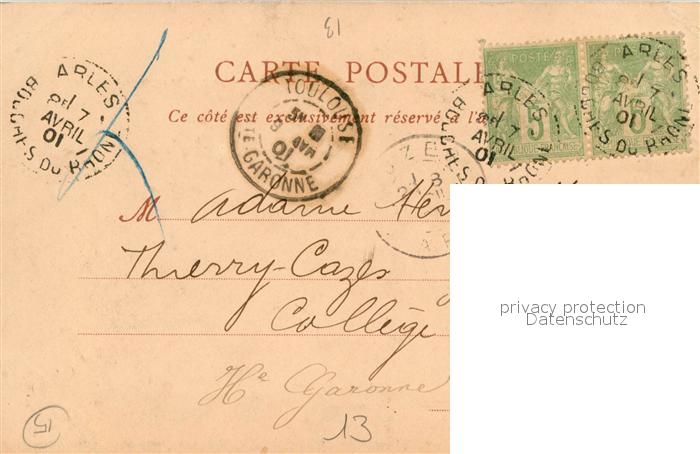 81
CARTE POSTALE
Ce côté est exclusivement réservé à l'a
ARLES
7
AVRIL
01
BOUCHES DU RHONE
TOULOUSE
01
HTE GARONNE
POSTES
5
RÉPUBLIQUE FRANÇAISE
ARLES
7
AVRIL
01
BOUCHES D
ARLES
7
AVRIL
01
BOUCHES DU RHONE
Madame
Thierry-Cazes
Collège
Hte Garonne
15
13
privacy protection
Datenschutz